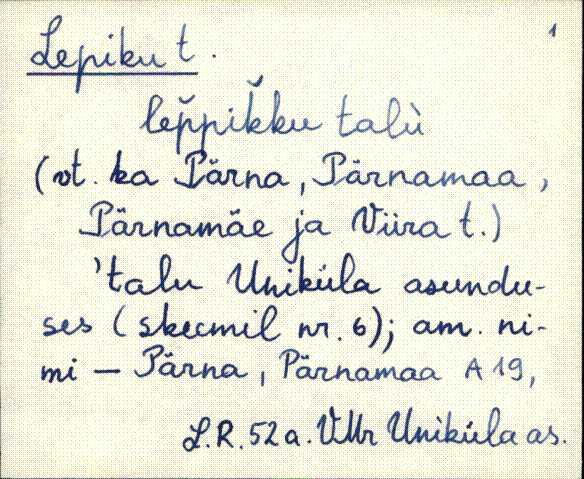 1
Lepiku t.
lep̌pik̆ku talù
(vt. ka Pärna, Pärnamaa,
Pärnamäe ja Viira t.)
'talu Uniküla asundu-
ses (skeemil nr. 6); am. ni-
mi – Pärna, Pärnamaa A 19,
L.R. 52 a. VMr Uniküla as.